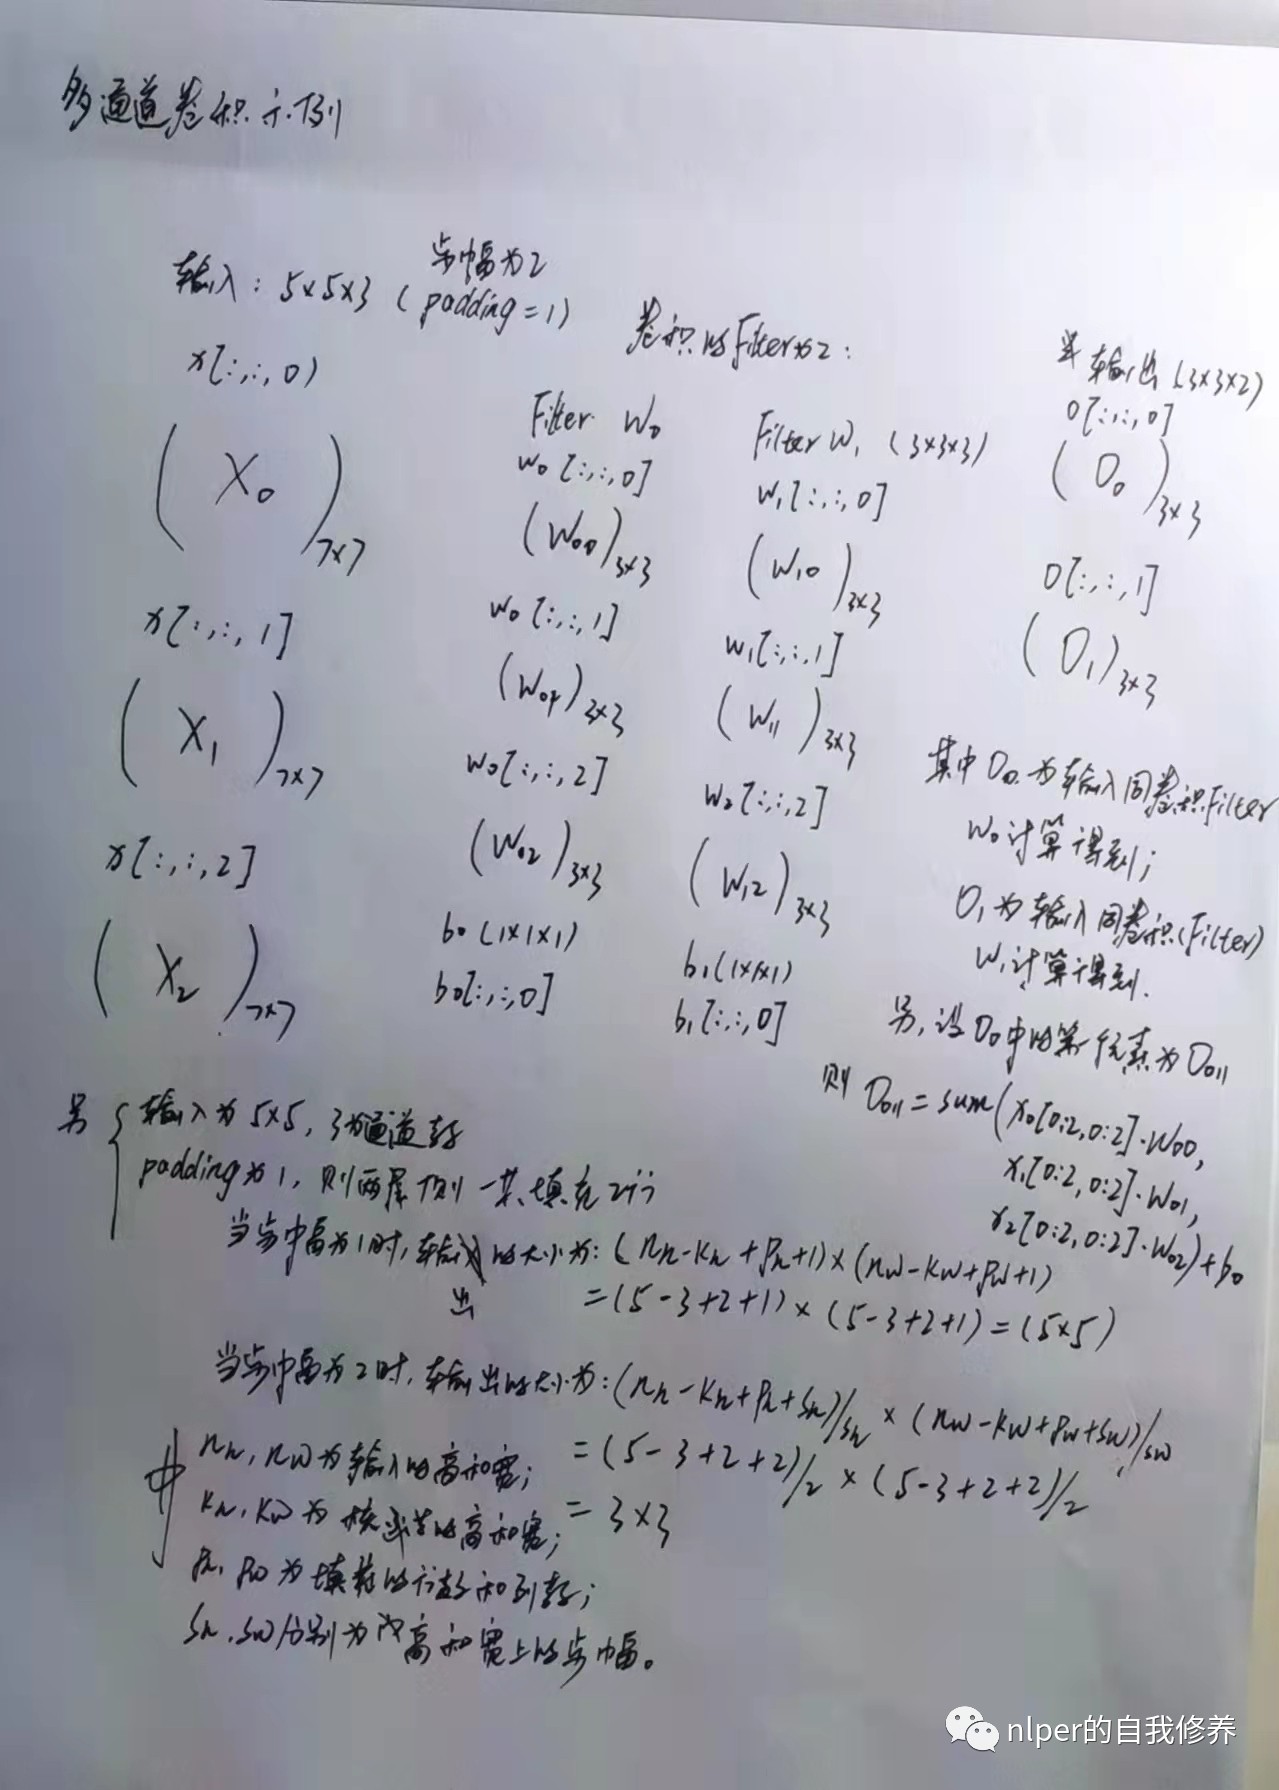 多通道卷积示例
步幅为2
输入：5×5×3（padding=1）
x[:,:,0)
(X0)7×7
x[:,:,1]
(X1)7×7
x[:,:,2]
(X2)7×7
卷积的Filter为2：
Filter W0
w0[:,:,0]
(W00)3×3
w0[:,:,1]
(W01)3×3
w0[:,:,2]
(W02)3×3
b0(1×1×1)
b0[:,:,0]
Filter W1 (3×3×3)
w1[:,:,0]
(W10)3×3
w1[:,:,1]
(W11)3×3
w2[:,:,2]
(W12)3×3
b1(1×1×1)
b1[:,:,0]
输出(3×3×2)
O[:,:,0]
(O0)3×3
O[:,:,1]
(O1)3×3
其中O0为输入同卷积Filter
W0计算得到；
O1为输入同卷积(Filter)
W1计算得到.
另，设O0中的第一个元素为O011
则 O011=sum(x0[0:2,0:2]·W00,
x1[0:2,0:2]·W01,
x2[0:2,0:2]·W02)+b0
另 输入为5×5，3为通道数
padding为1，则两层 一共填充2行
当步幅为1时，输出的大小为：(nh-kh+ph+1)×(nw-kw+pw+1)
=(5-3+2+1)×(5-3+2+1)=(5×5)
当步幅为2时，输出的大小为：(nh-kh+ph+sh)/sh×(nw-kw+pw+sw)/sw
=(5-3+2+2)/2×(5-3+2+2)/2
=3×3
其中 nh，nw为输入的高和宽；
kh，kw为核的高和宽；
ph，pw为填充的行数和列数；
sh，sw分别为高和宽上的步幅。
nlper的自我修养